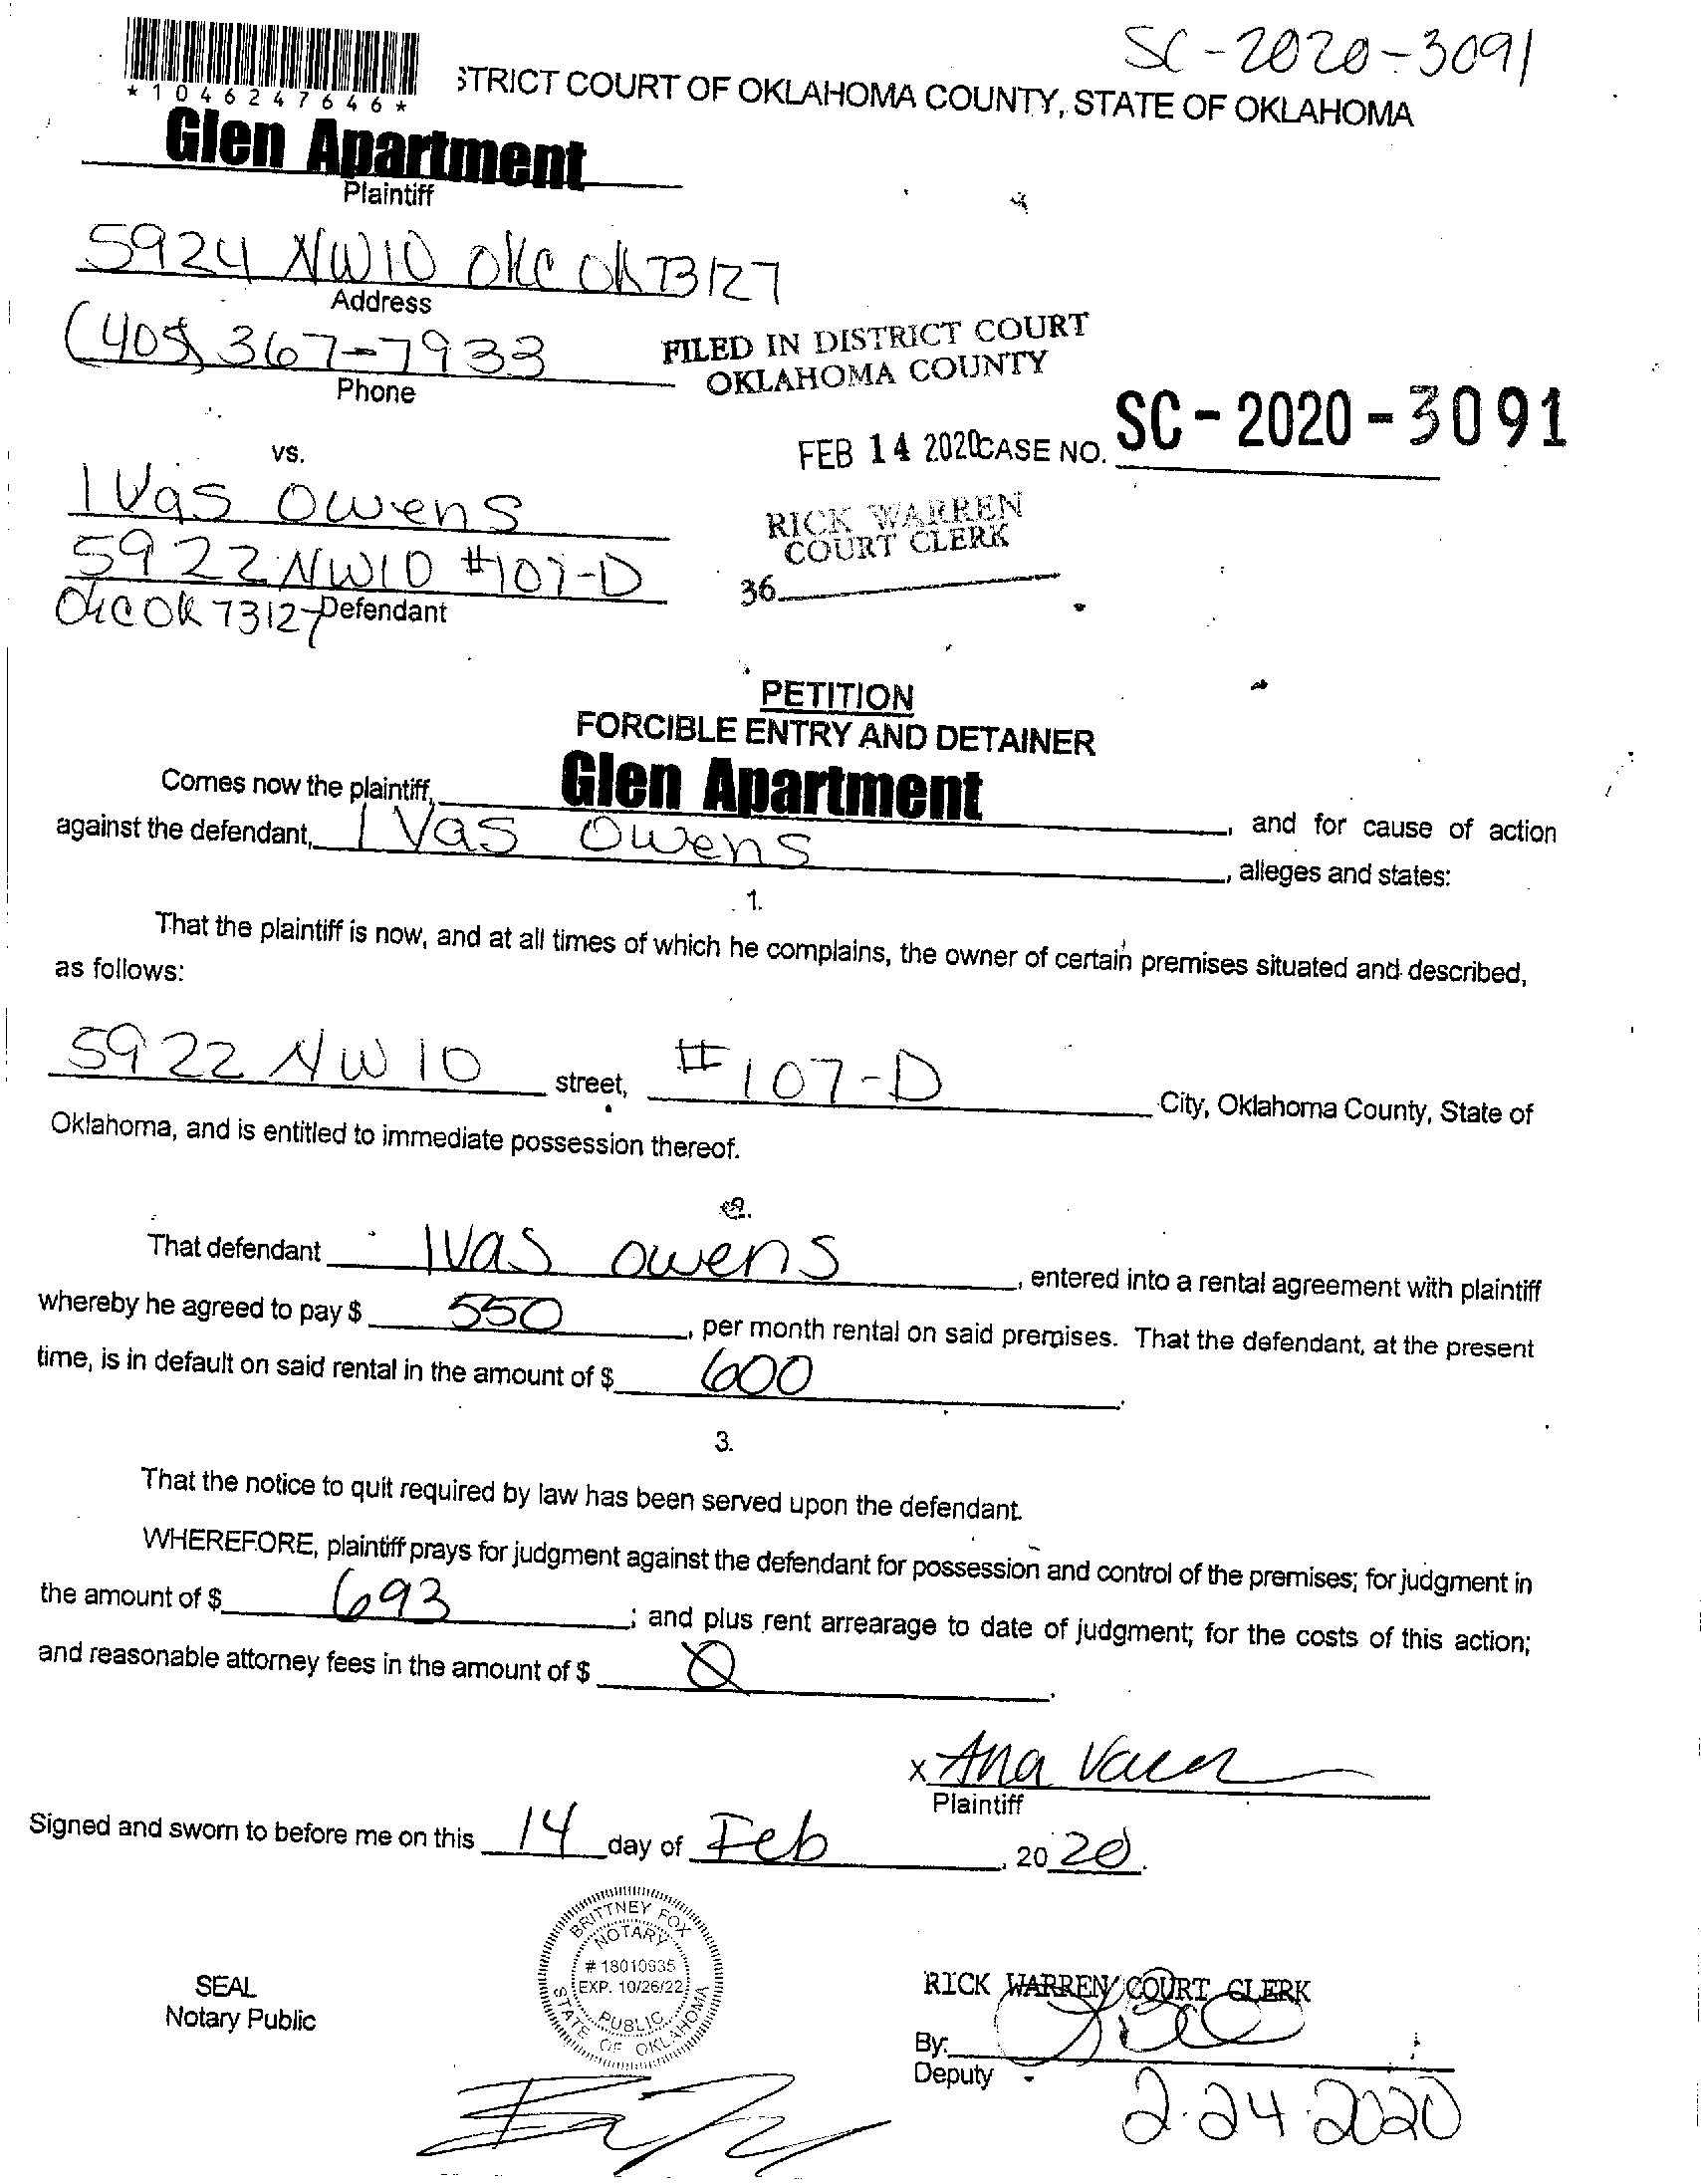 SC-2020-3091
*1046247646*
STRICT COURT OF OKLAHOMA COUNTY, STATE OF OKLAHOMA
Glen Apartment
Plaintiff
5924 NW10 OKC OK 73127
Address
(405) 367-7933
Phone
FILED IN DISTRICT COURT
OKLAHOMA COUNTY
FEB 14 2020 CASE NO. SC-2020-3091
vs.
Ivas Owens
RICK WARREN
COURT CLERK
5922 NW10 #107-D
36
OKC OK 73127 Defendant
PETITION
FORCIBLE ENTRY AND DETAINER
Comes now the plaintiff, Glen Apartment, and for cause of action
against the defendant, Ivas Owens, alleges and states:
1.
That the plaintiff is now, and at all times of which he complains, the owner of certain premises situated and described,
as follows:
5922 NW 10 street, #107-D City, Oklahoma County, State of
Oklahoma, and is entitled to immediate possession thereof.
2.
That defendant Ivas Owens, entered into a rental agreement with plaintiff
whereby he agreed to pay $ 550, per month rental on said premises. That the defendant, at the present
time, is in default on said rental in the amount of $ 600.
3.
That the notice to quit required by law has been served upon the defendant.
WHEREFORE, plaintiff prays for judgment against the defendant for possession and control of the premises; for judgment in
the amount of $ 693; and plus rent arrearage to date of judgment; for the costs of this action;
and reasonable attorney fees in the amount of $ 0.
x Ana
Plaintiff
Signed and sworn to before me on this 14 day of Feb, 2020.
BRITTNEY FOX
NOTARY
# 18010935
EXP. 10/26/22
PUBLIC
STATE OF OKLAHOMA
SEAL
Notary Public
RICK WARREN COURT CLERK
By:
Deputy
2-24-2020